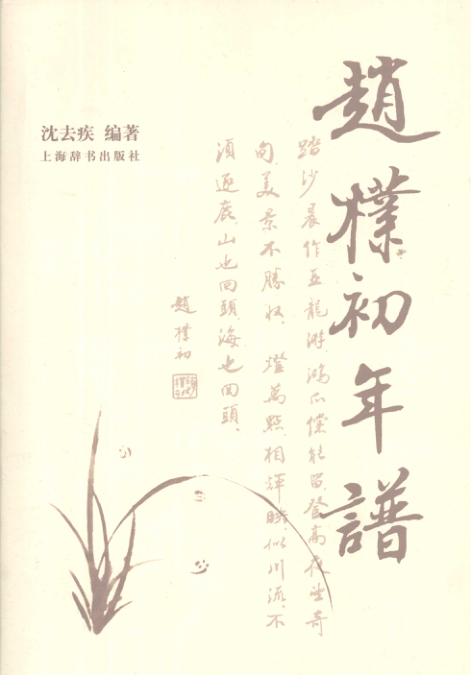 趙樸初年譜
沈去疾 编著
上海辞书出版社
踏沙晨作亚龍游鴻爪倘能留登高夜望奇
向美景不勝收燈萬點相輝映似川流不
須逐鹿山也回頭海也回頭
趙樸初